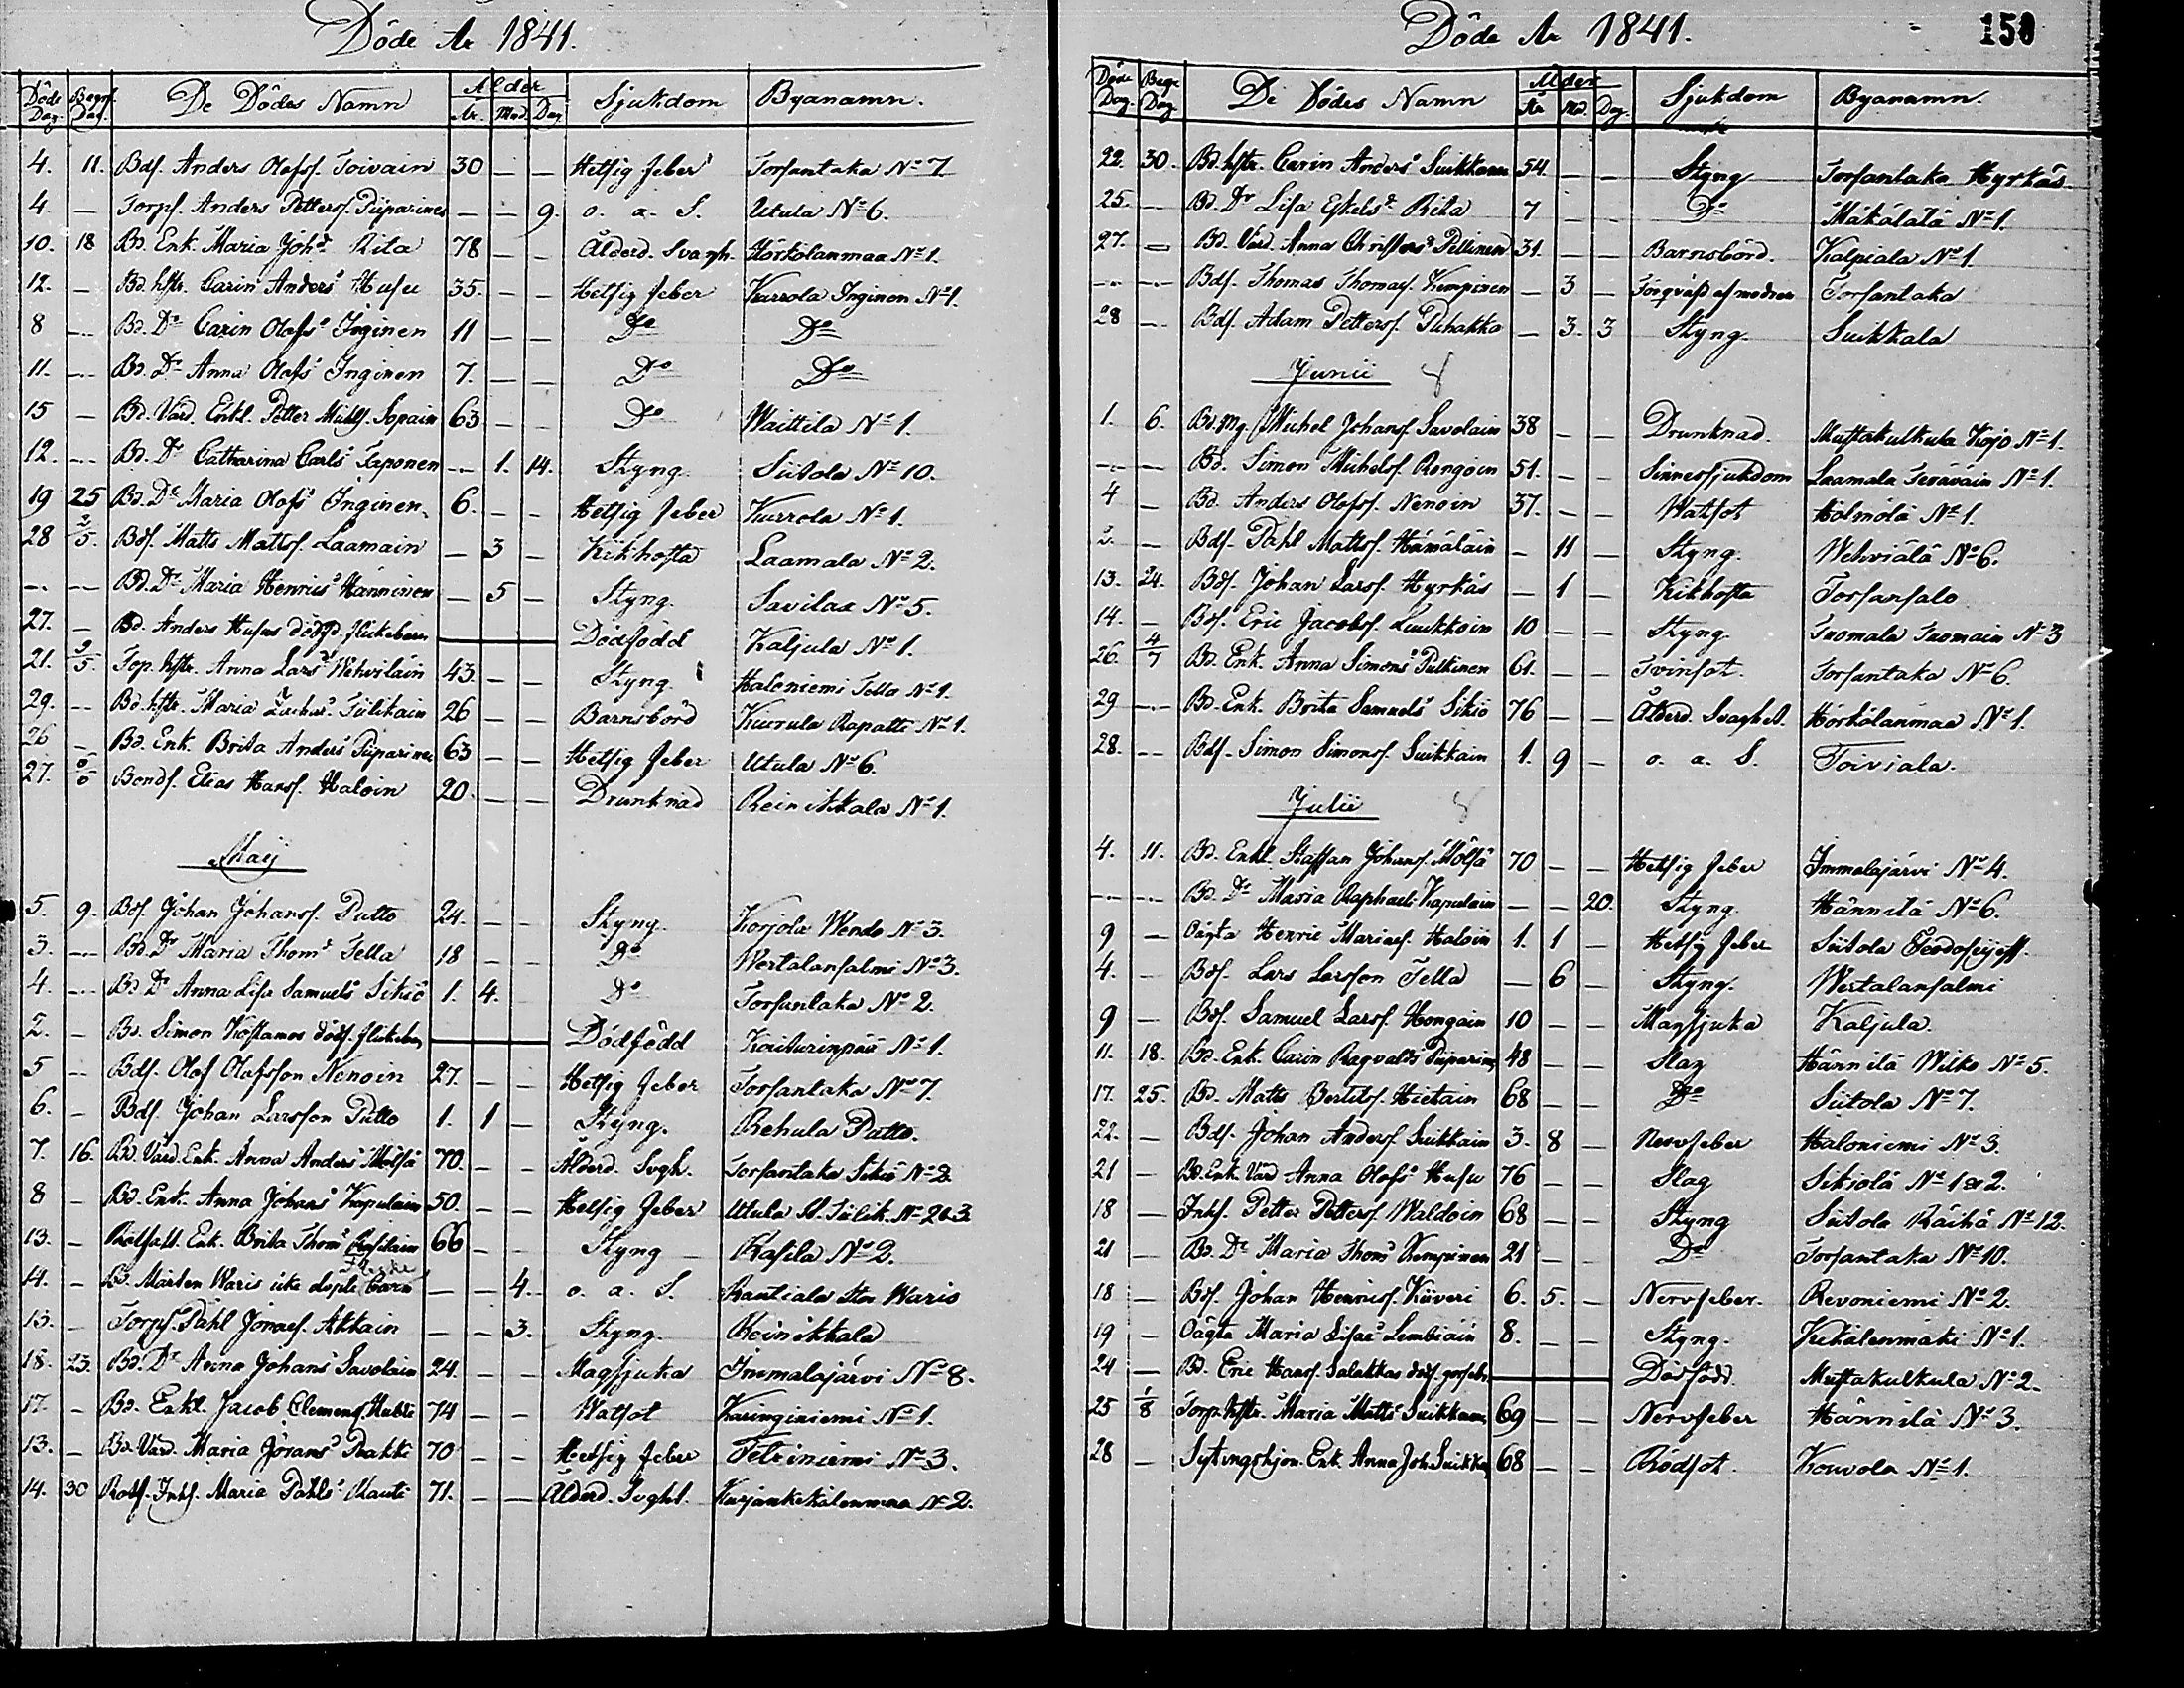 Döde År 1841.
Döde Dag. Begr. Dag. De Dödas Namn Ålder År. Mnd. Dag Sjukdom Byanamn.
4. 11. Bdf. Anders Olofsf. Toivain 30 — — Hetsig feber Torsantaka No 7
4. — Torpf. Anders Pettersf. Piiparinen — — 9. o. a. S. Utula No 6.
10. 18 Bd. Enk. Maria Johsdr Rita 78 — — Ålderd. Svagh. Hörkölanmaa No 1.
12. — Bd. hstr. Carin Andersdr Husu 35. — — Hetsig feber Kurrola Inginen No 1.
8 — Bd. Dr Carin Olofsdr Inginen 11 — — Do Do
11. — Bd. Dr Anna Olofsdr Inginen 7. — — Do Do
15 — Bd. Vård. Enkl. Petter Michlsf. Sopain 63 — — Do Waittila No 1.
12. — Bd. Dr Catharina Carlsdr Taponen — 1. 14. Styng. Siitola No 10.
19 25 Bd. Dr Maria Olofsdr Inginen 6. — — Hetsig feber Kurrola No 1.
28 2/5. Bdf. Matts Mattsf. Laamain — 3 — Kikhosta Laamala No 2.
— — Bd. Dr Maria Henricsdr Hänninen — 5 — Styng. Savilax No 5.
27. — Bd. Anders Husus dödfd. flickebarn Dödfödd Kaljula No 1.
21. 2/5. Torp. hstr. Anna Larsdr Wehviläin 43. — — Styng. Haloniemi Tella No 1.
29. — Bd. hstr. Maria Zachrisdr Tiilikain 26 — — Barnsbörd Kuurula Rapatti No 1.
26 — Bd. Enk. Brita Andersdr Piiparinen 63 — — Hetsig feber Utula No 6.
27. Bondf. Elias Hansf. Haloin 20. — — Drunknad Reinikkala No 1.
Maij
5. 9. Bdf. Johan Johansf. Putto 24. — — Styng. Korjola Wendo No 3.
3. — Bd. Dr Maria Thomsdr Tella 18 — — Do Wertalansalmi No 3.
4. — Bd Dr Anna Lisa Samuelsdr Sikiö 1. 4. Do Torsantaka No 2.
2. — Bd. Simon Kostamos dödf. flickebarn Dödfödd Kaiturinpää No 1.
5 — Bdf. Olof Olofsson Nenoin 27. — — Hetsig feber Torsantaka No 7.
6. — Bdf. Johan Larsson Putto 1. 1 — Styng. Rehula Putto.
7. 16. Bd. Vård. Enk. Anna Andersdr Mölsä 70. — — Ålderd. Svgh. Torsantaka Sikiö No 2.
8 — Bd. Enk. Anna Johansdr Kapulain 50. — — Hetsig feber Utula St. Tiilik. No 2&3
13. — Rotfatt. Enk. Brita Thomsdr Rasilain 66 — — Styng Rasila No 2.
14. — Bd. Mårten Waris icke döpte Flicke Barn — — 4. o. a. S. Rautiala Sten Waris
13. — Torpf. Påhl Jönaef. Akkain — — 3. Styng. Reinikkala
18. 23. Bd. Dr Anna Johansdr Savolain 24. — — Magsjuka Immalajärvi No 8.
17. — Bd. Enkl. Jacob Clemensf. Hubli 74 — — Watsot Karinginiemi No 1.
13. — Bd. Vård. Maria Jöransdr Pakki 70 — — Hetsig feber Tetriniemi No 3.
14. 30 Rotf. Inhf. Maria Påhlsdr Rauti 71. — — Ålderd. Svght. Karjankikälenmaa No 2.
Döda År 1841. 150
Döde Dag. Begr Dag De Dödes Namn Ålder År Md. Dag. Sjukdom Byanamn.
22. 30. Bd. hstr. Carin Andersdr Suikkanen 54. — — Styng Torsantaka Hyrkäs
25. — Bd. Dr Lisa Eskelsdr Rita 7 — — Do Mäkälälä No 1.
27. — Bd. Värd. Anna Christersdr Pellinen 31. — — Barnsbörd. Kalpiala No 1
— — Bdf. Thomas Thomasf. Kumpinen — 3 — Förqväfd af modren Torsantaka
28 — Bdf. Adam Pettersf. Puhakka — 3. 3 Styng. Suikkala
Junii
1. 6. Bd. Mg. Michel Johansf. Savolain 38 — — Drunknad. Mustakulkula Kojo No 1.
— — Bd. Simon Michelsf. Rongoin 51. — — Sinnessjukdom Laamala Teräväin No 1.
4 — Bd. Anders Olofsf. Nenoin 37. — — Watsot Hölmölä No 1.
2. — Bdf. Påhl Mattsf. Hämäläin — 11 — Styng. Wehviälä No 6.
13. 24. Bdf. Johan Larsf. Hyrkäs — 1 — Kikhosta Torsansalo
14. — Bdf. Eric Jacobsf. Luukkoin 10 — — Styng. Tuomala Tuomain No 3
26. 4/7 Bd. Enk. Anna Simonsdr Pulkinen 61. — — Tvinsot. Torsantaka No 6.
29 — Bd. Enk. Brita Samuelsdr Sikiö 76 — — Ålderd. Svaghet. Hörkölänmaa No 1.
28. — Bdf. Simon Simonsf. Suikkain 1. 9 — o. a. S. Toiviala.
Julii
4. 11. Bd. Enkl. Staffan Johansf. Mölsä 70 — — Hetsig feber Immalajärvi No 4.
— — Bd. Dr Maria Raphaels Kapulain — — 20. Styng. Hännilä No 6.
9 — Oägta Henric Mariaef. Haloin 1. 1 — Hetsig feber Siitola Feodosejeff.
4. — Bdf. Lars Larsson Tella — 6 — Styng. Wertalansalmi
9 — Bdf. Samuel Larsf. Hongain 10 — — Magsjuka Kaljula.
11. 18. Bd. Enk. Carin Ragvaldsdr Piiparinen 48 — — Slag Hännilä Wilko No 5.
17. 25. Bd. Matts Bertilsf. Hietain 68 — — Do Siitola No 7.
22. — Bdf. Johan Andersf. Suikkain 3. 8 — Nervfeber Haloniemi No 3.
21 — Bd. Enk. Vård Anna Olofsdr Husu 76 — — Slag Sikiolä No 1 & 2.
18 — Inhf. Petter Pettersf. Waldoin 68 — — Styng Siitola Räihä No 12.
21 — Bd. Dr Maria Thomsdr Kempinen 21 — — Do Torsantaka No 10.
18 — Bdf. Johan Henricsf. Kiiveri 6. 5. — Nervfeber. Revoniemi No 2.
19 — Oägta Maria Lisaedr Lembiäin 8. — — Styng. Kekälenmäki No 1.
24 — Bd. Eric Hansf. Salakkas dödf. gossebn. Dödfödd. Mustakulkula No 2.
25 1/8 Torp. hstr. Maria Mattsdr Suikkanen 69 — — Nervfeber Hännilä No 3.
28 — Sytingshjon. Enk. Anna Joh. Suikka 68 — — Rödsot. Kouvola No 1.